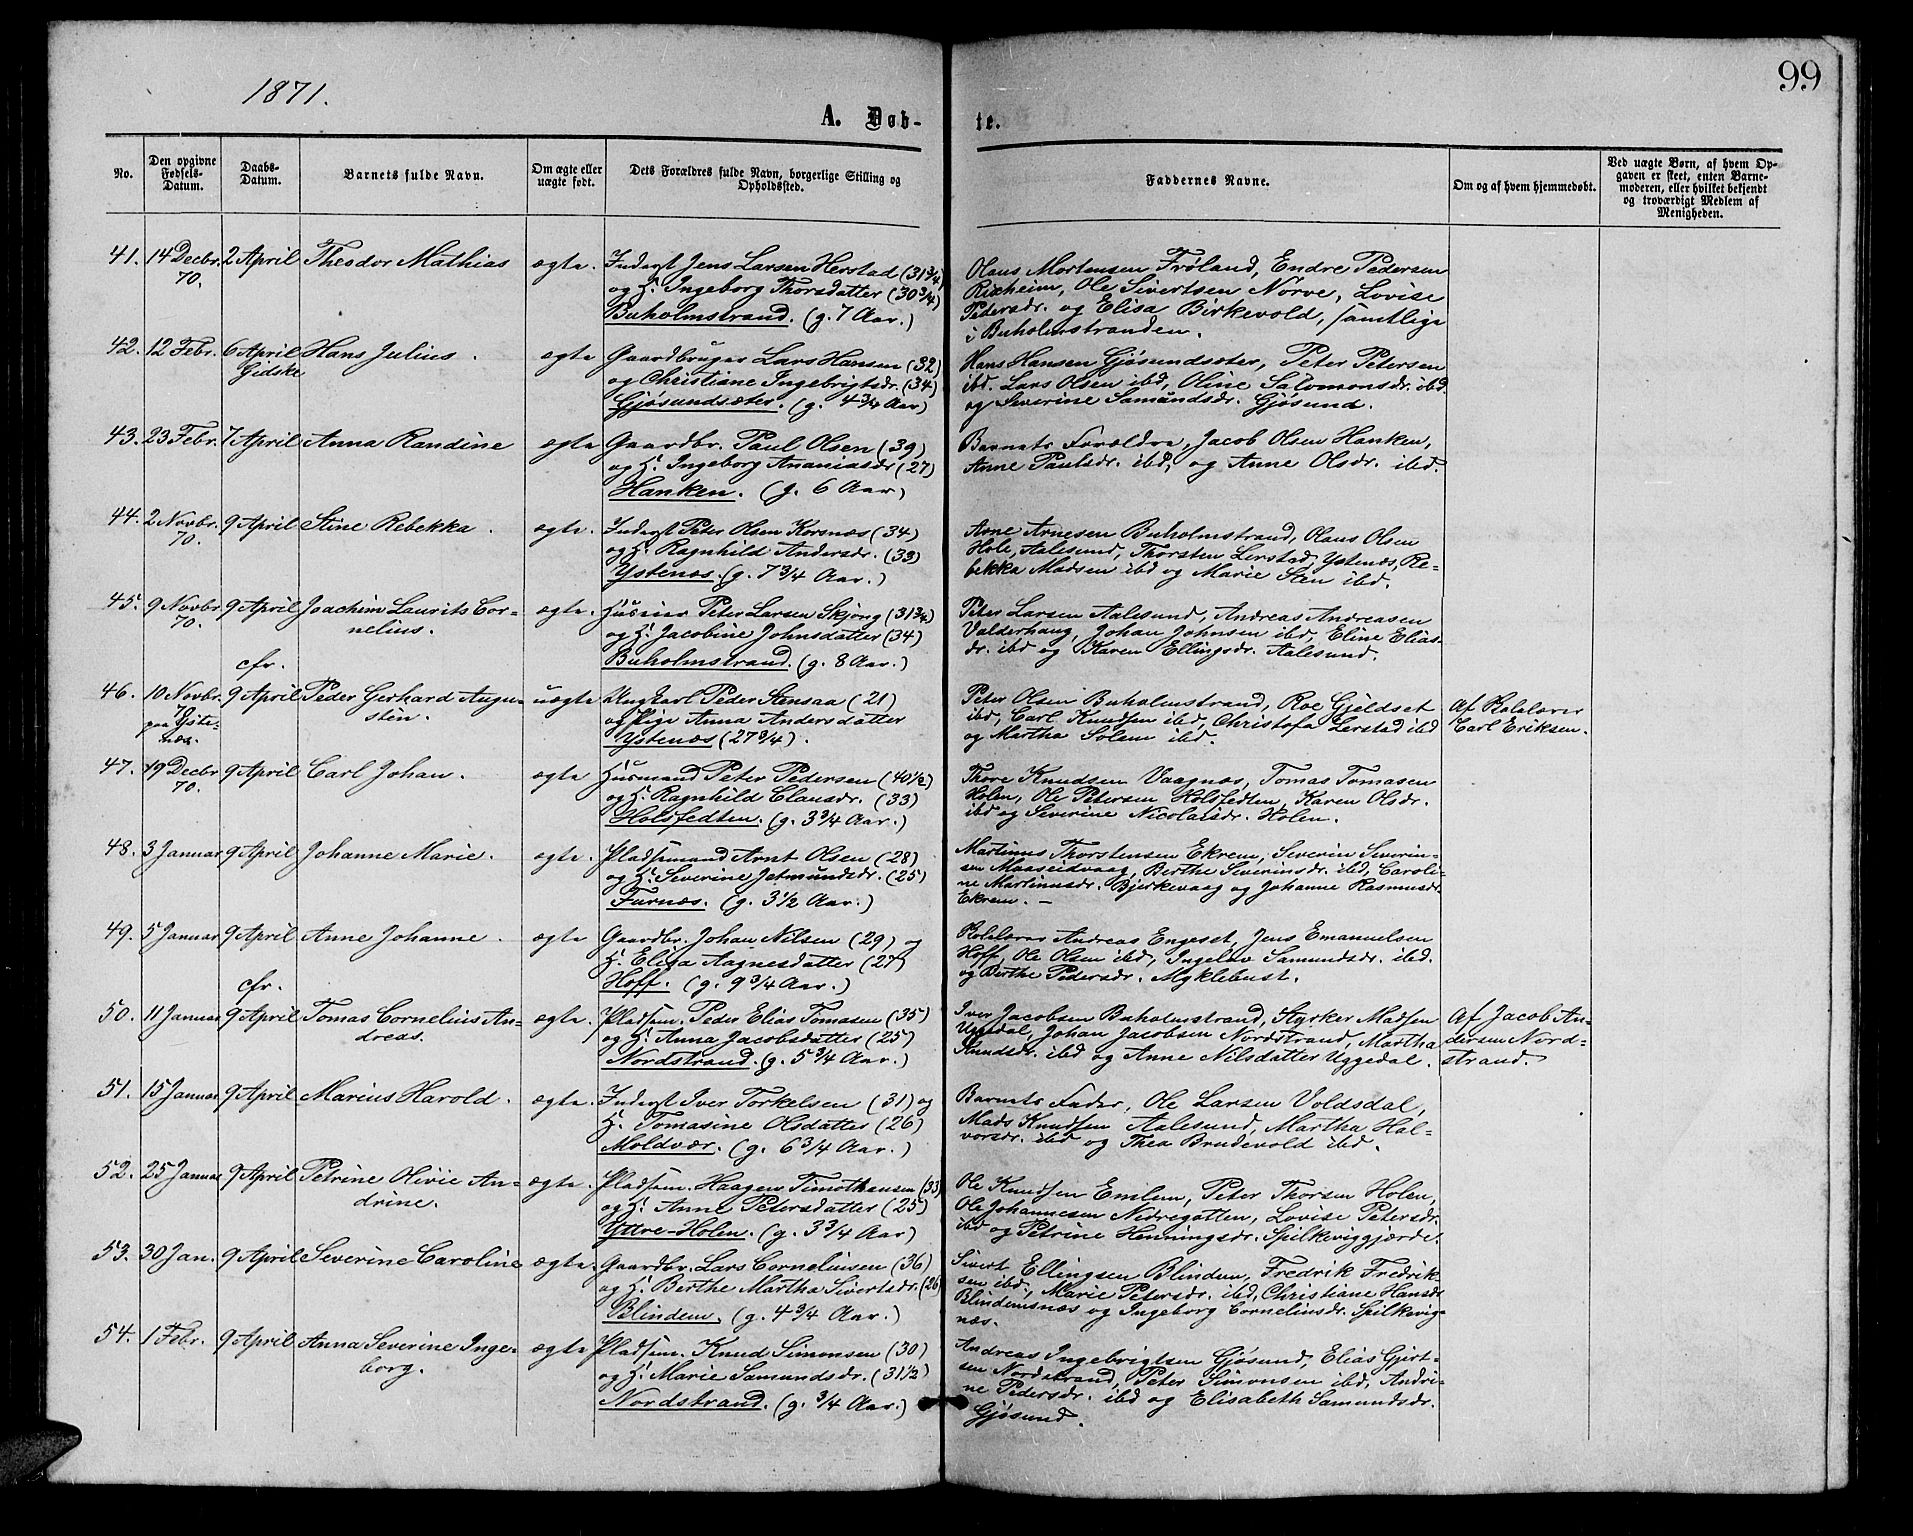 1871.
99
A. Døb-
te.
No.
Den opgivne Fødsels-Datum.
Daabs-Datum.
Barnets fulde Navn.
Om ægte eller uægte født.
Dets Forældres fulde Navn, borgerlige Stilling og Opholdsted.
Faddernes Navne.
Om og af hvem hjemmedøbt.
Ved uægte Børn, af hvem Opgaven er skeet, enten Barnemoderen, eller hvilket bekjendt og troværdigt Medlem af Menigheden.
41. 14 Decbr. 2 April Theodor Mathias ægte. Inderst Jens Larsen Herstad (31 3/4)
70. og H. Ingeborg Thorsdatter (30 3/4)
Buholmstrand. (g. 7 Aar.)
Olaus Mortensen Frøland, Endre Pedersen
Rixheim, Ole Sivertsen Norve, Lovise
Pedersdr. og Elisa Birkevold, samtlige
i Buholmstranden.
42. 12 Febr. 6 April Hans Julius. ægte Gaardbruger Lars Hansen (32)
Gidske og Christiane Ingebrigtsdr. (34)
Gjøsundsæter. (g. 4 3/4 Aar)
Hans Hansen Gjøsundsæter, Peter Petersen
ibd. Lars Olsen ibd, Oline Salomonsdr. ibd
og Severine Samundsdr. Gjøsund.
43. 23 Febr. 7 April Anna Randine ægte Gaardbr. Paul Olsen (39)
og H. Ingeborg Ananiasdr (27)
Hanken. (g. 6 Aar)
Barnets Forældre, Jacob Olsen Hanken,
Anne Paulsdr. ibd, og Anne Olsdr. ibd.
44. 2 Novbr. 9 April Stine Rebekka. ægte. Inderst Peter Olsen Korsnæs (34)
70. og H. Ragnhild Andersdr. (33)
Ystenæs. (g. 7 3/4 Aar.)
Arne Arnesen Buholmstrand, Olaus Olsen
Hole, Aalesund, Thorsten Lerstad, Ystenæs, Re-
bekka Madsen ibd og Marie Sten ibd.
45. 9 Novbr 9 April Joachim Laurits Cor- ægte. Huseier Peter Larsen Skjong (31 3/4)
70. nelius. og H. Jacobine Johnsdatter (34)
cfr. Buholmstrand. (g. 8 Aar.)
Peter Larsen Aalesund, Andreas Andreasen
Valderhaug, Johan Johnsen ibd, Eline Elias-
dr. ibd og Karen Ellingsdr. Aalesund.
46. 10 Novbr. 9 April Peder Gerhard Augu- uægte Ungkarl Peder Stensaa (21)
70 stin. og Pige Anna Andersdatter
paa Yste-
næs. Ystenæs (27 3/4).
Peter Olsen Buholmstrand, Roe Gjeldset
ibd, Carl Knudsen ibd, Christofa Lerstad ibd
og Martha Solem ibd.
Af Kolelærer
Carl Eriksen.
47. 19 Decbr 9 April Carl Johan. ægte Husmand Peter Pedersen (40 1/2)
70. og H. Ragnhild Clausdr. (33)
Holsfedten. (g. 3 3/4 Aar.)
Thore Knudsen Vaagnæs, Tomas Tomasen
Holen, Ole Petersen Holsfedten, Karen Olsdr.
ibd og Severine Nicolaisdr. Holen.
48. 3 Januar 9 April Johanne Marie. ægte. Pladsemand Arnt Olsen (28)
og H. Severine Jetmundsdr. (25)
Furnæs. (g. 3 1/2 Aar.)
Martinus Thorstensen Ekrem, Severin Severin-
sen Maaseidvaag, Berthe Severinsdr. ibd, Caroli-
ne Martinusdr. Bjerkevaag og Johanne Rasmusdr.
Ekrem. —
49. 5 Januar 9 April Anne Johanne. ægte Gaardbr. Johan Nilsen (29) og
H. Elisa Aagnesdatter (27)
cfr. Hoff. (g. 9 3/4 Aar.)
Kolelærer Andreas Engeset, Jens Emanuelsen
Hoff, Ole Olsen ibd, Ingelev Samundsdr. ibd.
og Berthe Pedersdr. Myklebust.
50. 11 Januar 9 April Tomas Cornelius An- ægte. Pladsm. Peder Elias Tomasen (35)
dreas. og H. Anna Jacobsdatter (25)
Nordstrand. (g. 5 3/4 Aar.)
Iver Jacobsen Buholmstrand, Styrker Madsen
Uggedal, Johan Jacobsen Nordstrand, Martha
Knudsdr. ibd og Anne Nilsdatter Uggedal.
Af Jacob An-
dersen Nord-
strand.
51. 15 Januar 9 April Marius Harold. ægte. Inderst Iver Torkelsen (31) og
H. Tomasine Olsdatter (26)
Moldvær. (g. 6 3/4 Aar.)
Barnets Fader, Ole Larsen Voldsdal,
Mads Knudsen Aalesund, Martha Hal-
vorsdr. ibd og Thea Brudevold ibd.
52. 25 Januar 9 April Petrine Olivie An- ægte. Pladsm. Haagen Timotheusen (33)
drine. og H. Anne Petersdatter (25)
Yttre-Holen. (g. 3 3/4 Aar)
Ole Knudsen Emlem, Peter Thorsen Holen,
Ole Johannesen Nedregotten, Lovise Petersdr.
ibd og Petrine Henningsdr. Spilkeviggjærde.
53. 30 Jan. 9 April Severine Caroline ægte. Gaardbr. Lars Corneliusen (36)
og H. Berthe Martha Sivertsdr. (26)
Blindem. (g. 4 3/4 Aar.)
Sivert Ellingsen Blindem, Fredrik Fredrik-
sen ibd, Marie Petersdr. ibd, Christiane Hansdr
Blindemsnæs og Ingeborg Corneliusdr. Spilkevig-
næs.
54. 1 Febr. 9 April Anna Severine Inge- ægte Pladsm. Knud Simonsen (30)
borg. og H. Marie Samundsdr. (31 1/2)
Nordstrand. (g. 3/4 Aar.)
Andreas Ingebrigtsen Gjøsund, Elias Gjert-
sen Nordstrand, Peter Simonsen ibd, Andri-
ne Pedersdr. ibd og Elisabeth Samundsdr.
Gjøsund.